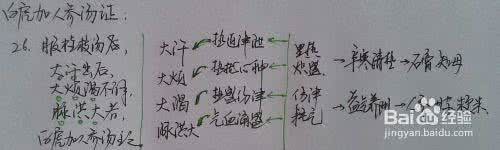 白虎加人参汤证:
26. 服桂枝汤后,
大汗出后,
大烦渴不解,
脉洪大者,
白虎加人参汤主之
大汗 热迫津泄
大烦 热扰心神
大渴 热盛伤津
脉洪大 气血涌盛
里热炽盛 → 辛寒清热 → 石膏 知母
伤津耗气 → 益气养阴 → 人参 粳米
Baidu 百度经验
jingyan.baidu.com